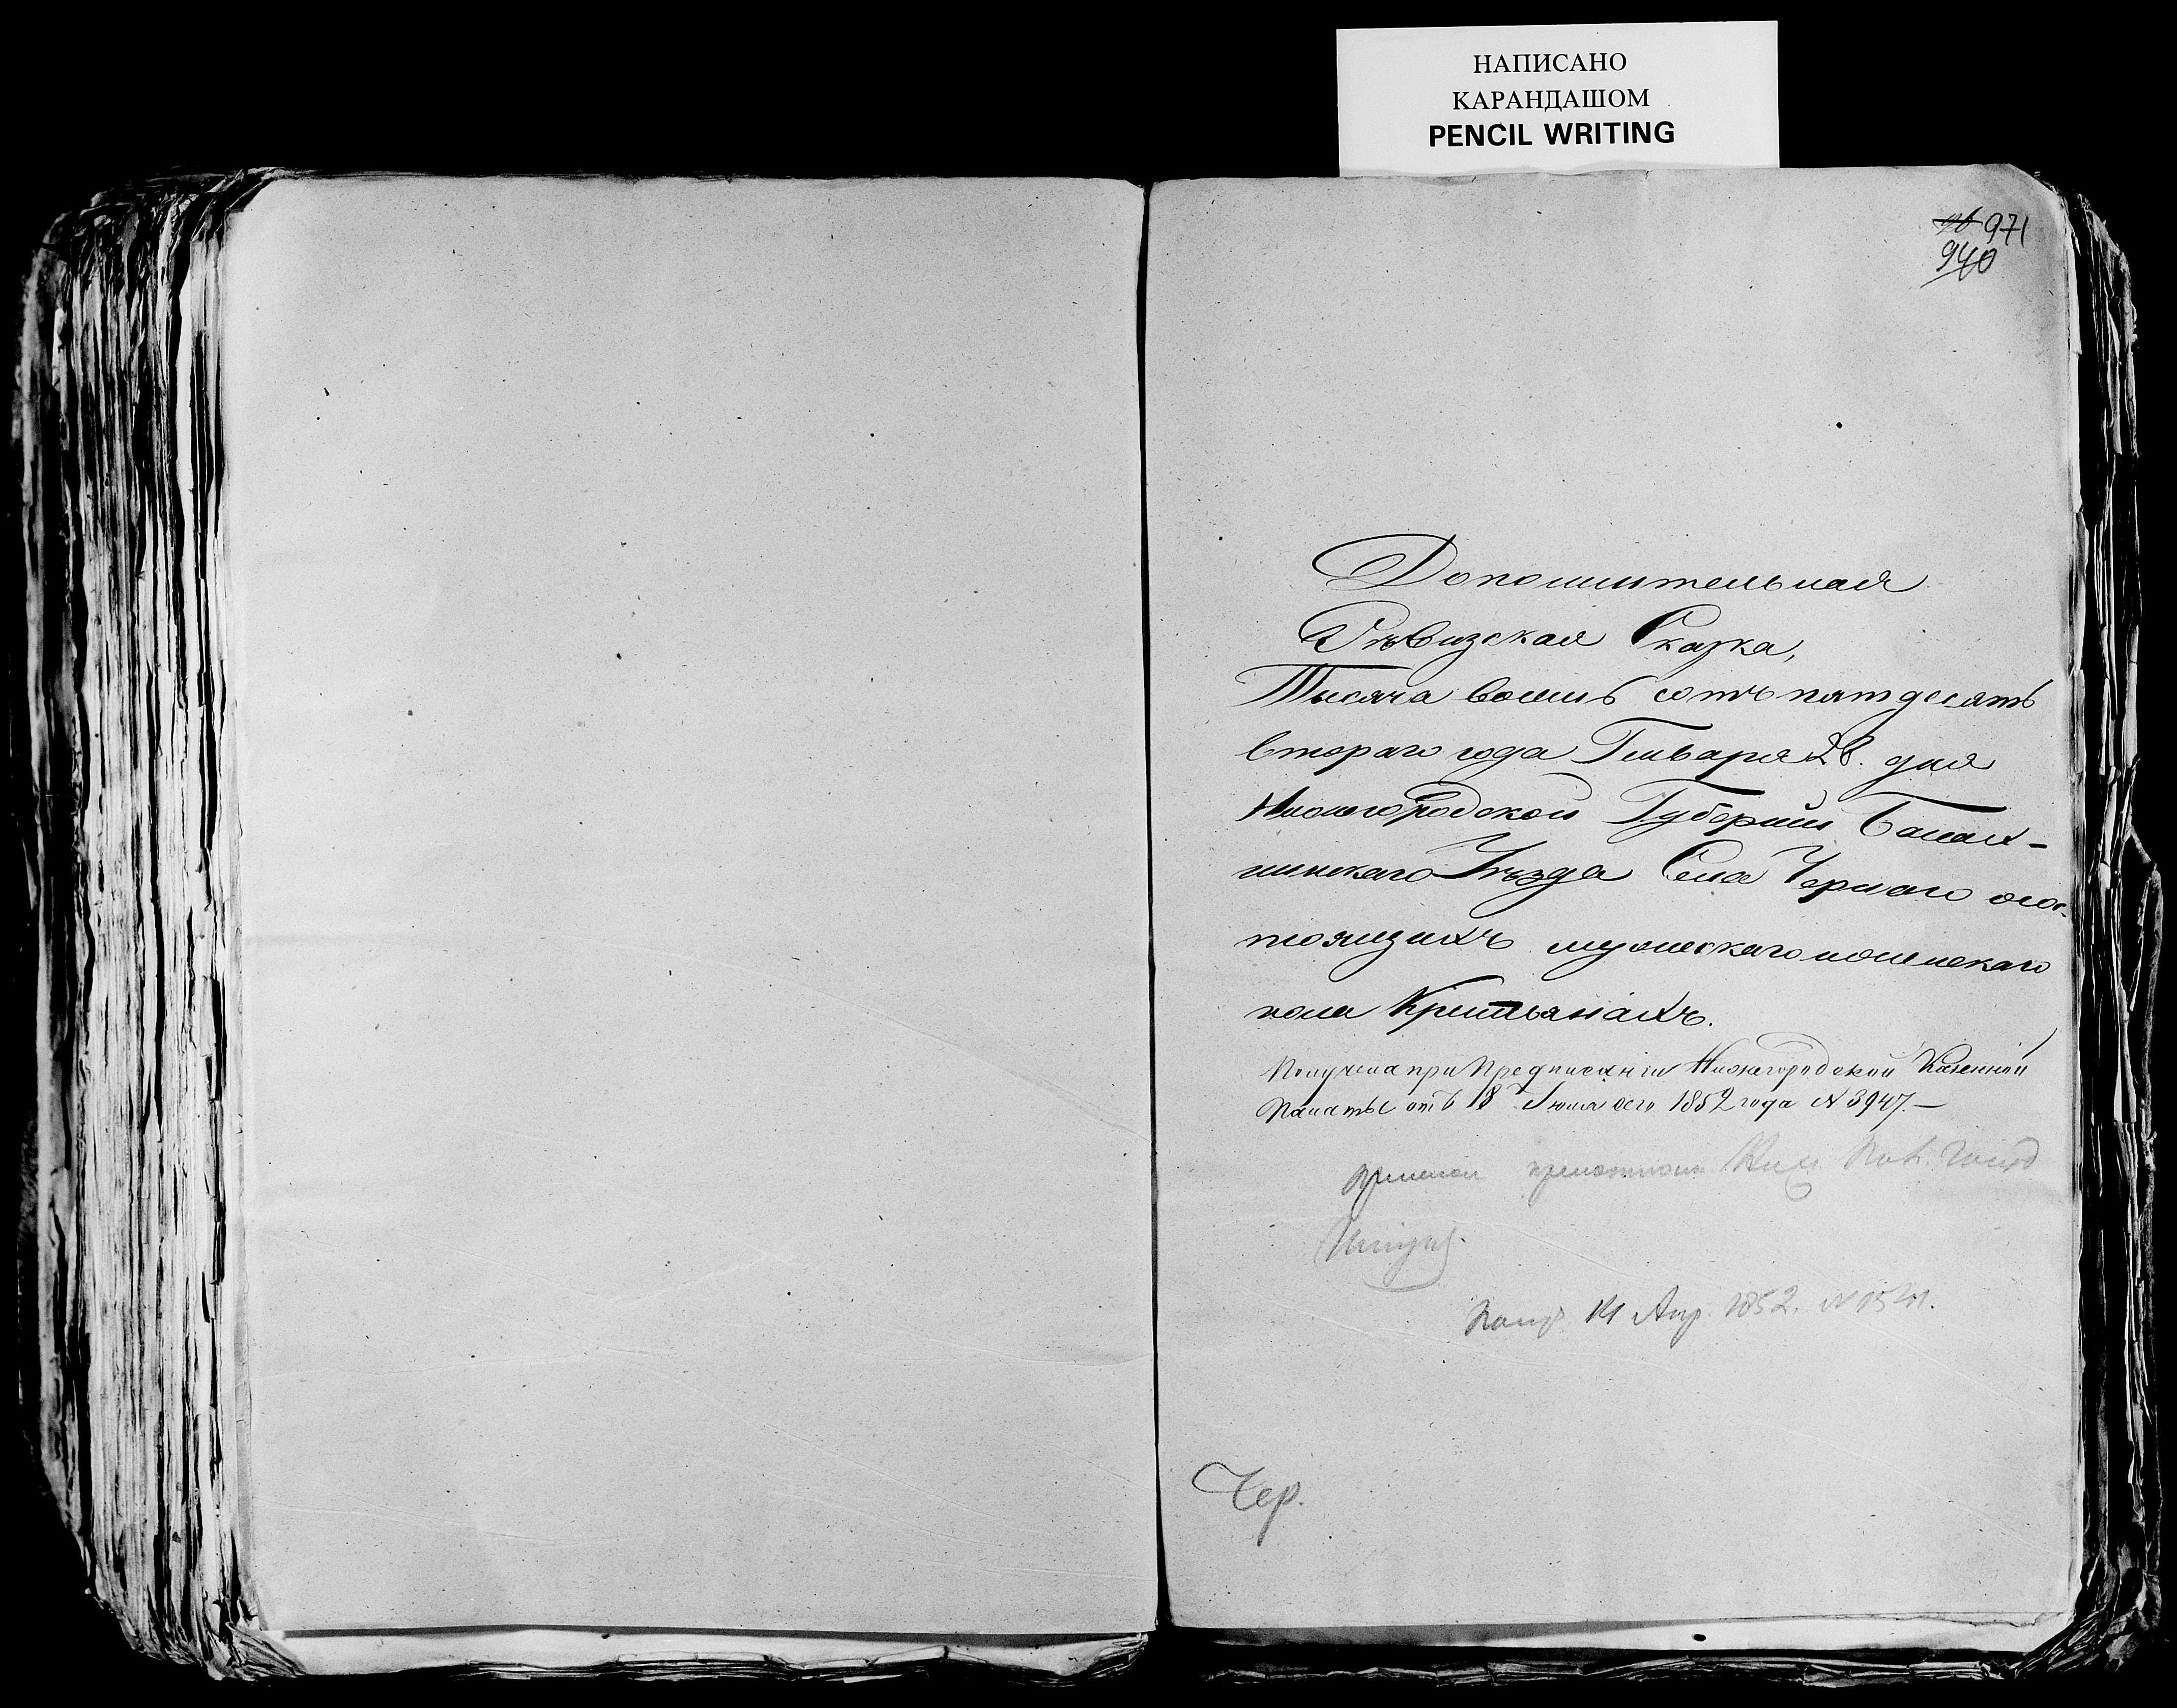 НАПИСАНО
КАРАНДАШОМ
PENCIL WRITING
971
940
Дополнительная
Рѣвизская Сказка,
Тысяча восемь сотъ пятдесятъ
втораго года Генваря 28. дня
Нижегородской Губерніи Балах-
нинскаго Уѣзда Села Чернаго осос-
тоящихъ мужескаго иженскаго
пола Крестьянахъ.
Получена при Предписаніи Нижегородской Казенной
Палаты отъ 18 Іюля сего 1852 года № 8947.—
14 Апр. 1852. №
Чер.